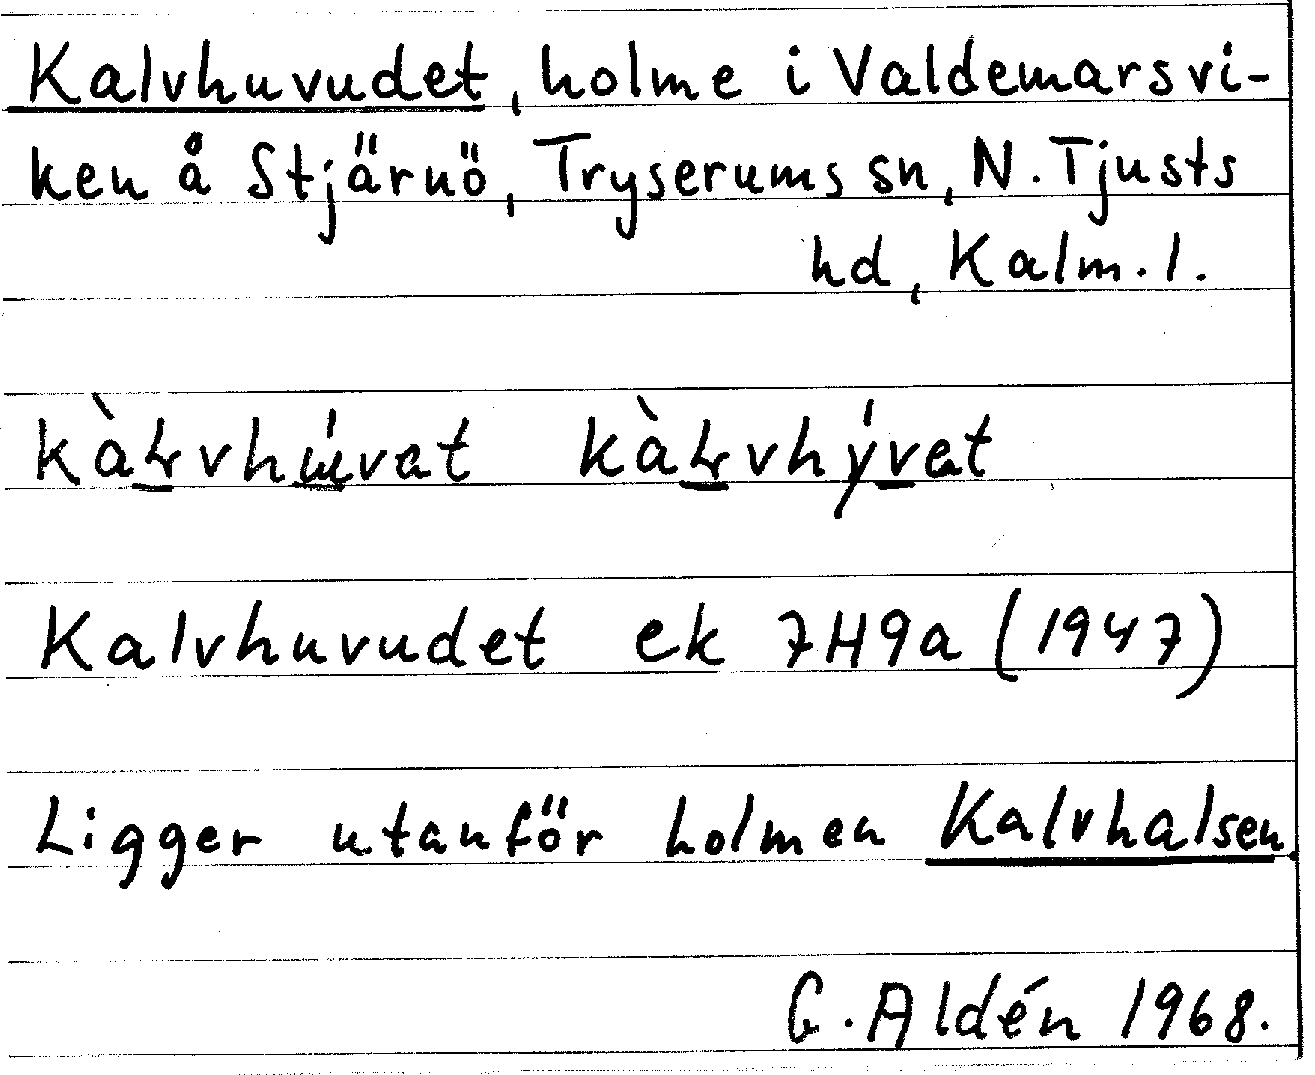 Kalvhuvudet, holme i Valdemarsvi-
ken å Stjärnö, Tryserums sn, N. Tjusts
hd, Kalm. l.
Kalvhuvudet ek 7H9a (1947)
Ligger utanför holmen Kalvhalsen.
G. Aldén 1968.